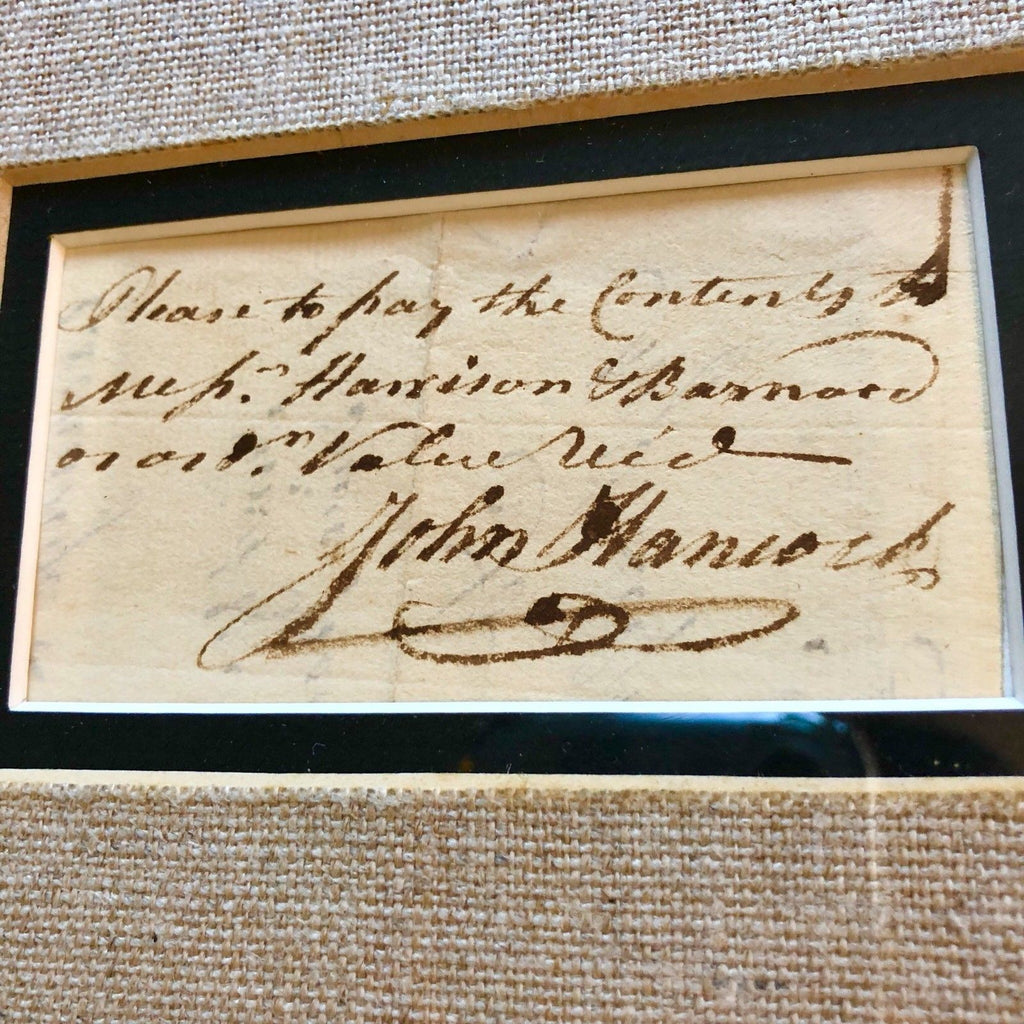 Please to pay the Contents to
Messrs. Harrison & Barnard
or ordr. Value Rec'd
John Hancock